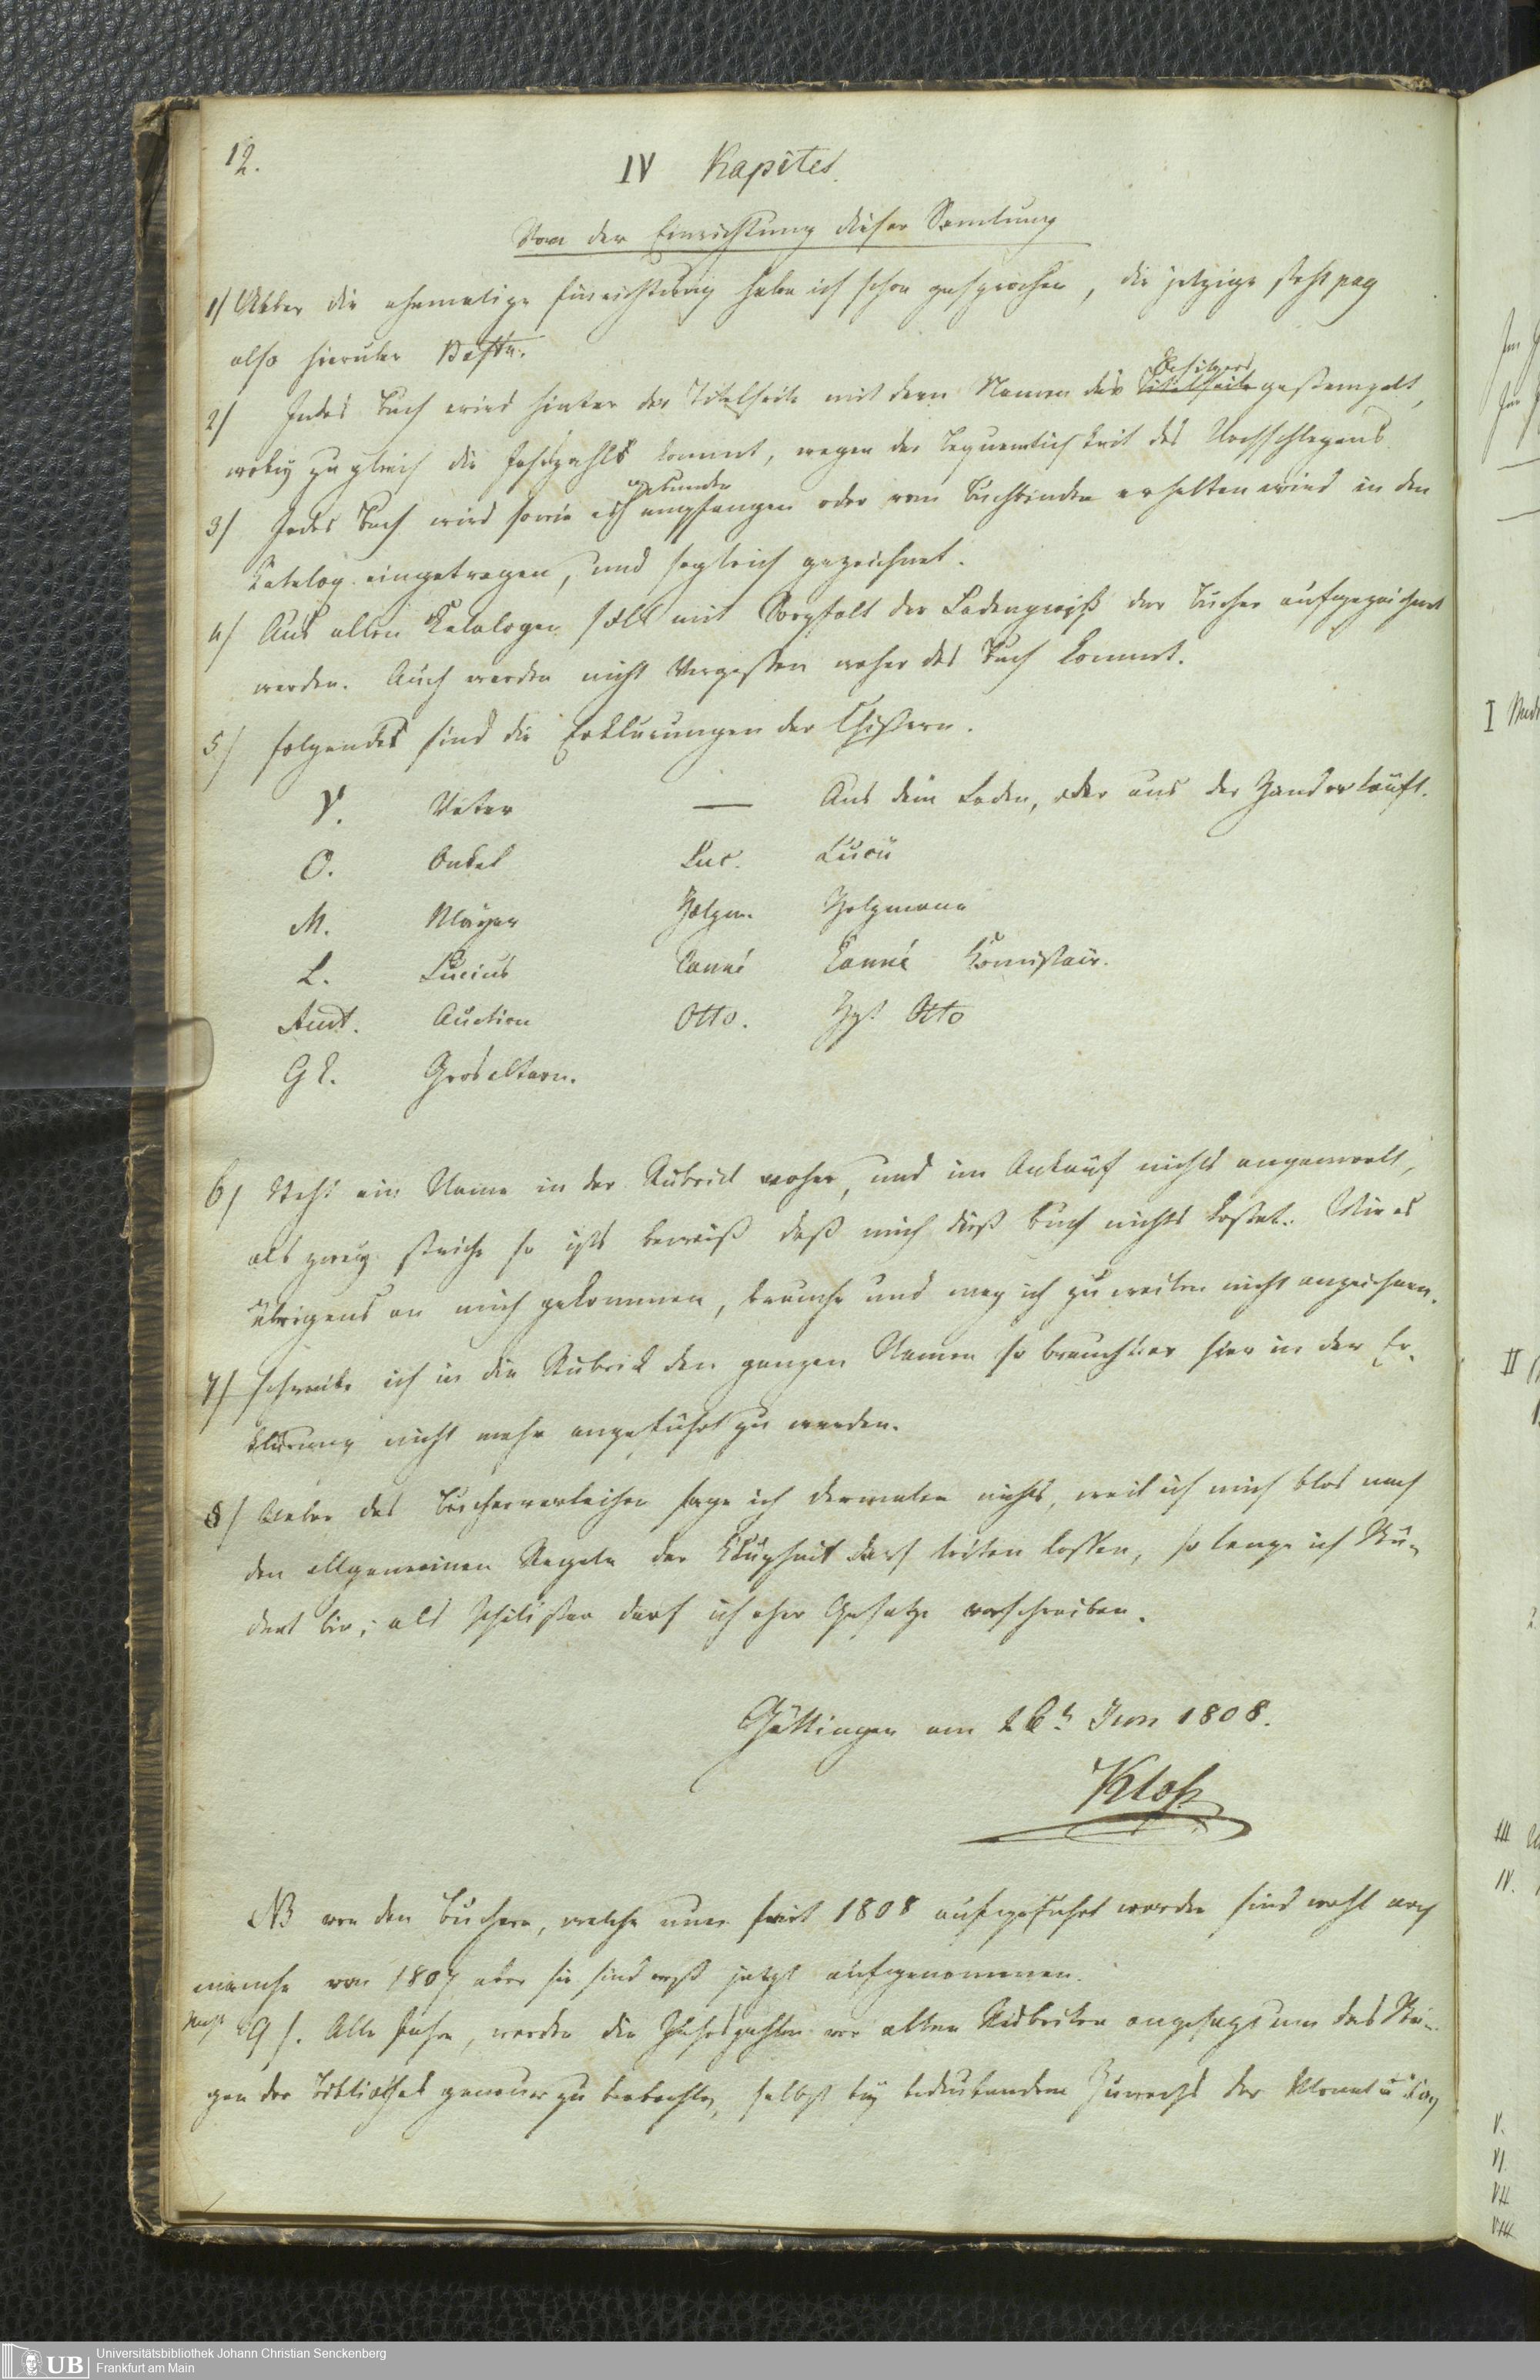 12.
IV Kapitel.
Von der Einrichtung dieser Samlung
1/ Ueber die ehemalige Einrichtung habe ich schon gesprochen, die jetzige steht pag
also hieruber Nichts.
2/ Jedes Buch wird hinter der Titelseite mit dem Namen des Besitzers gestempelt,
wobey zugleich die Jahrzahl kommt, wegen der Bequemlichkeit des Nachschlagens
3/ Jedes Buch wird sowie ich gebunden empfangen oder vom Buchbinder erhalten wird in den
Katalog eingetragen, und sogleich gezeichnet.
4/ Aus allen Katalogen soll mit Sorgfalt der Ladenpreiß der Bucher aufgezeichnet
werden. Auch werden nicht Vergessen woher das Buch kommt.
5/ folgendes sind die Erklärungen der Chiffern.
V. Vater — Aus dem Laden, oder aus der Hand erkauft.
O. Onkel Luc. Lucii
M. Mayer Holzm. Holzmann
L. Lucius Canné Canné Komissair.
Auct. Auction Otto. Hr. Otto
GE. Groseltern.
6/ Steht ein Name in der Rubrick woher, und im Ankauf nichts angemerkt,
als zwey striche so ists beweiß daß mich dieß Buch nichts kostet. Wie es
übrigens an mich gekommen, brauche und mag ich zuweilen nicht anzeichnen.
7/ schreibe ich in die Rubrick den ganzen Namen so braucht er hier in der Er-
klärung nicht mehr angeführt zu werden.
8/ Ueber das Bücherverleihen sage ich dermalen nichts, weil ich mich blos nach
den allgemeinen Regeln der Klugheit darf leiten lassen, so lange ich Stu-
dent bin; als Philister darf ich eher Gesetze vorschreiben.
Göttingen am 26t Jun 1808.
Kloß
NB von den Buchern, welche nun seit 1808 aufgeführt worden sind wohl noch
manche von 1807 aber sie sind erst jetzt aufgenommen.
9/. Alle Jahre, werden die Jahrszahlen vor allen Rubriken angesagt um das Stei-
gen der Bibliothek genauer zu beobachten, selbst bey bedeutendem Zuwachs der Monat u Tag
Universitätsbibliothek Johann Christian Senckenberg
Frankfurt am Main
UB